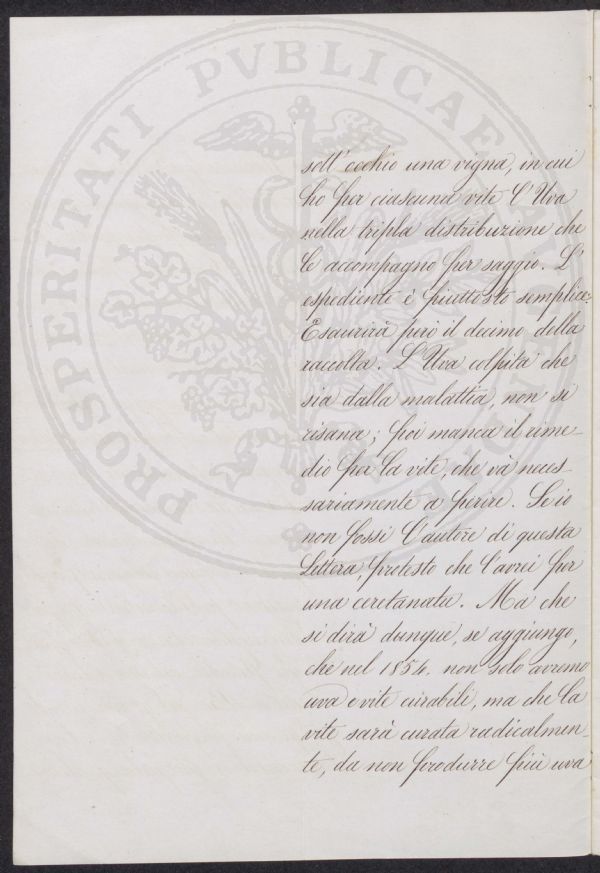 PROSPERITATI PVBLICAE
sott' occhio una vigna, in cui
ho per ciascuna vite l' Uva
nella tripla distribuzione che
Le accompagno per saggio. L'
espediente è piuttosto semplice.
Esaurirà però il decimo della
raccolta. L' Uva colpita che
sia dalla malattia, non si
risana; poi manca il rime-
dio per la vite, che và neces-
sariamente a perire. Se io
non fossi l' autore di questa
Lettera, protesto che l' avrei per
una ceretanata. Ma che
si dirà dunque, se aggiungo,
che nel 1854. non solo avremo
uva e vite curabili, ma che la
vite sarà curata radicalmen
te, da non produrre più uva